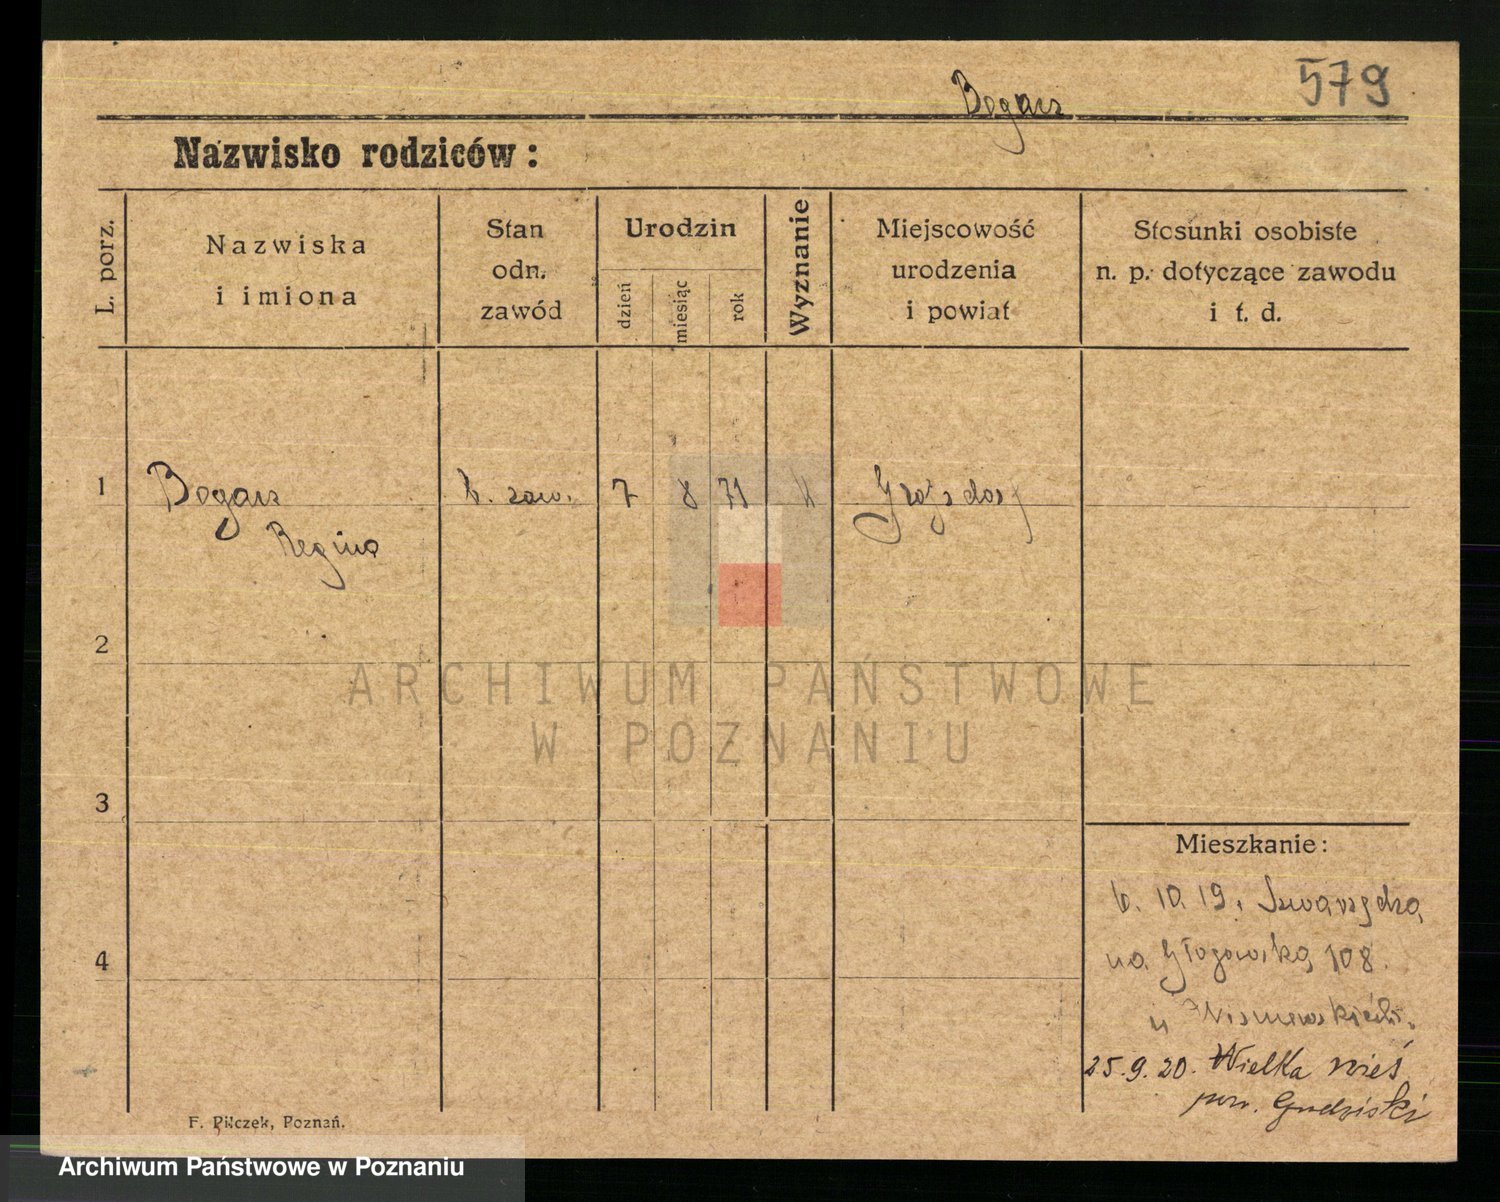 579
Bogacz
Nazwisko rodziców:
L. porz.
Nazwiska
i imiona
Stan
odn.
zawód
Urodzin
dzień
miesiąc
rok
Wyznanie
Miejscowość
urodzenia
i powiat
Stosunki osobiste
n. p. dotyczące zawodu
i t. d.
1
Bogacz
Regina
b. zaw. 7 8 71 K
2
3
4
Mieszkanie:
6. 10. 19.
na Głogowską 108.
u
25.9.20. Wielka wieś
pow. Grodziski
F. Pilczek, Poznań.
ARCHIWUM PAŃSTWOWE
W POZNANIU
Archiwum Państwowe w Poznaniu